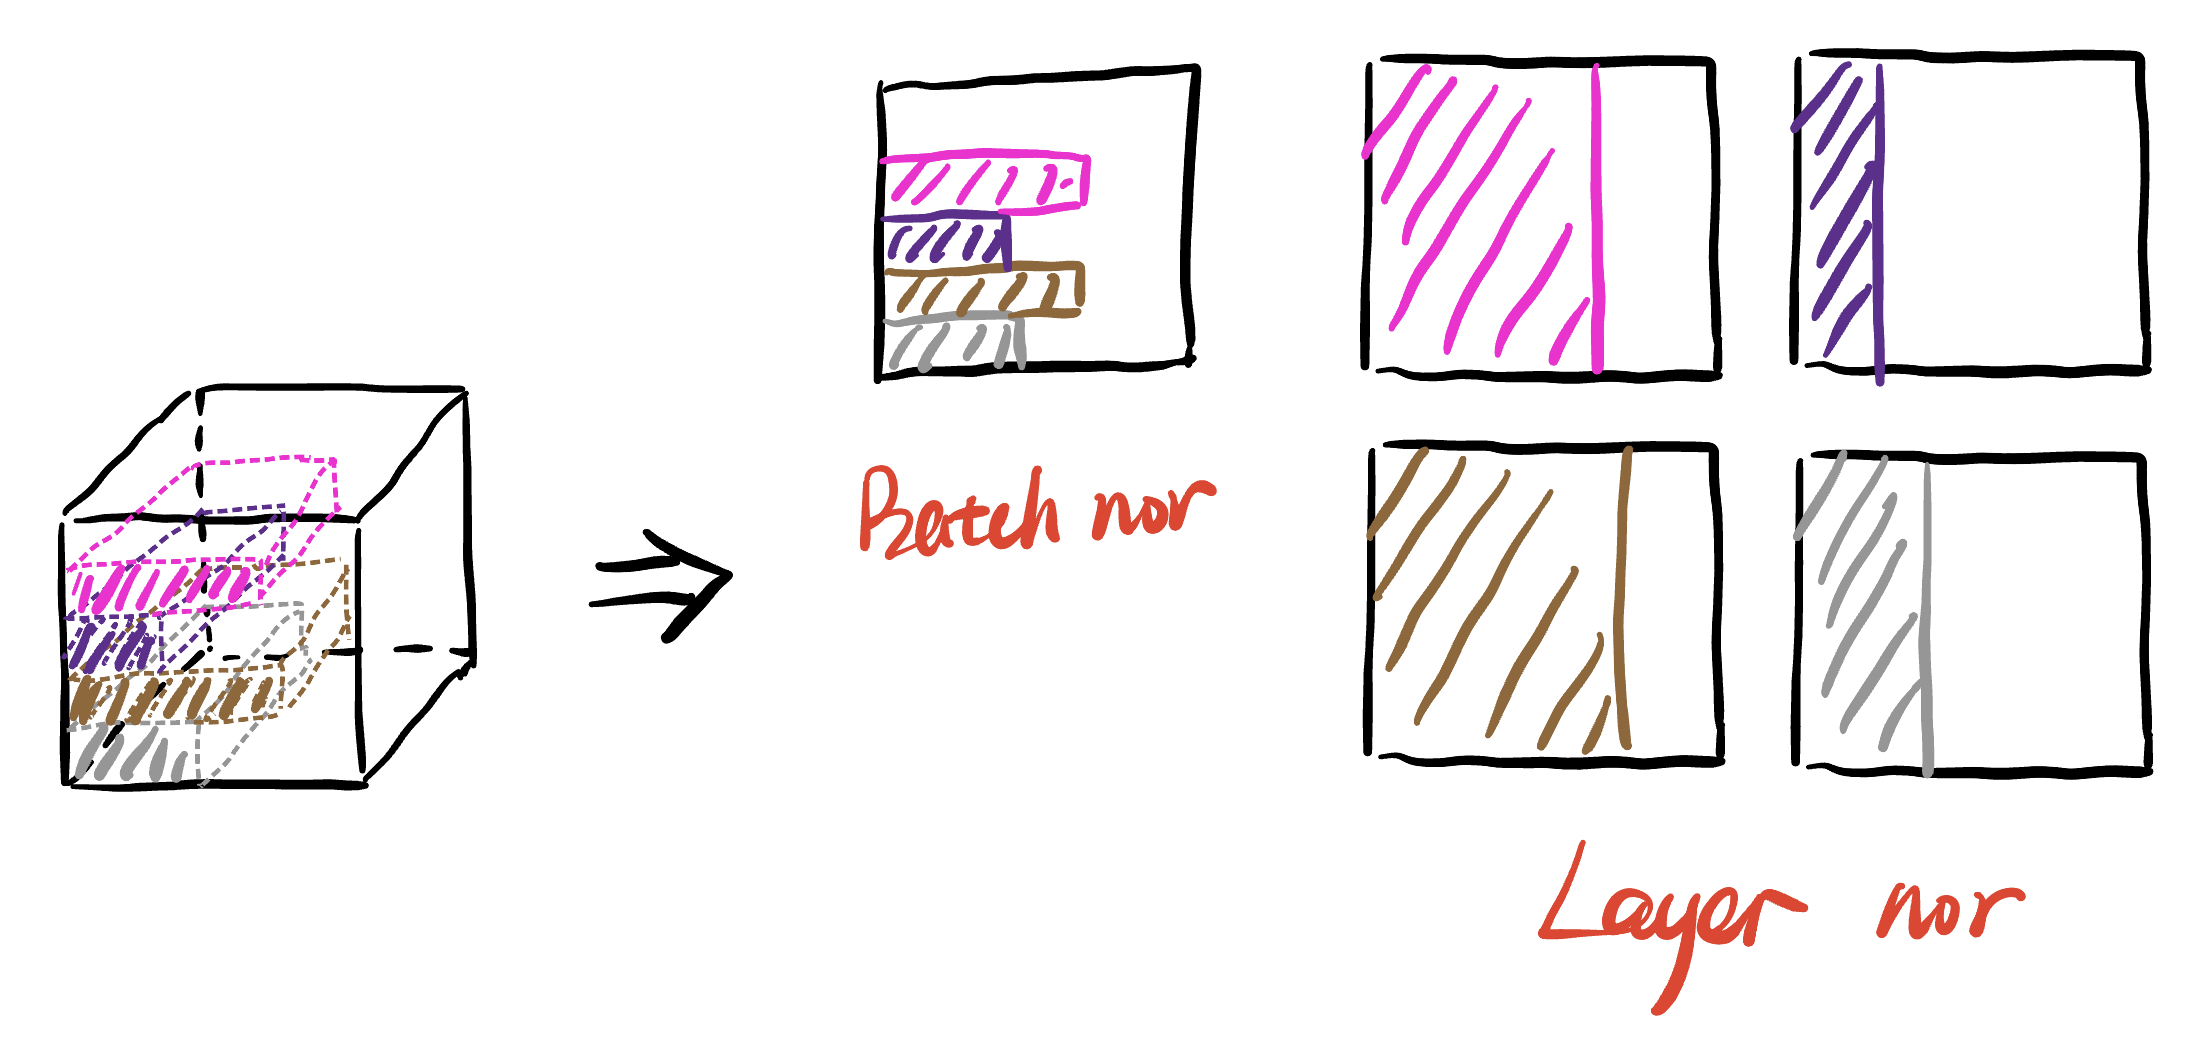 Batch nor
Layer nor